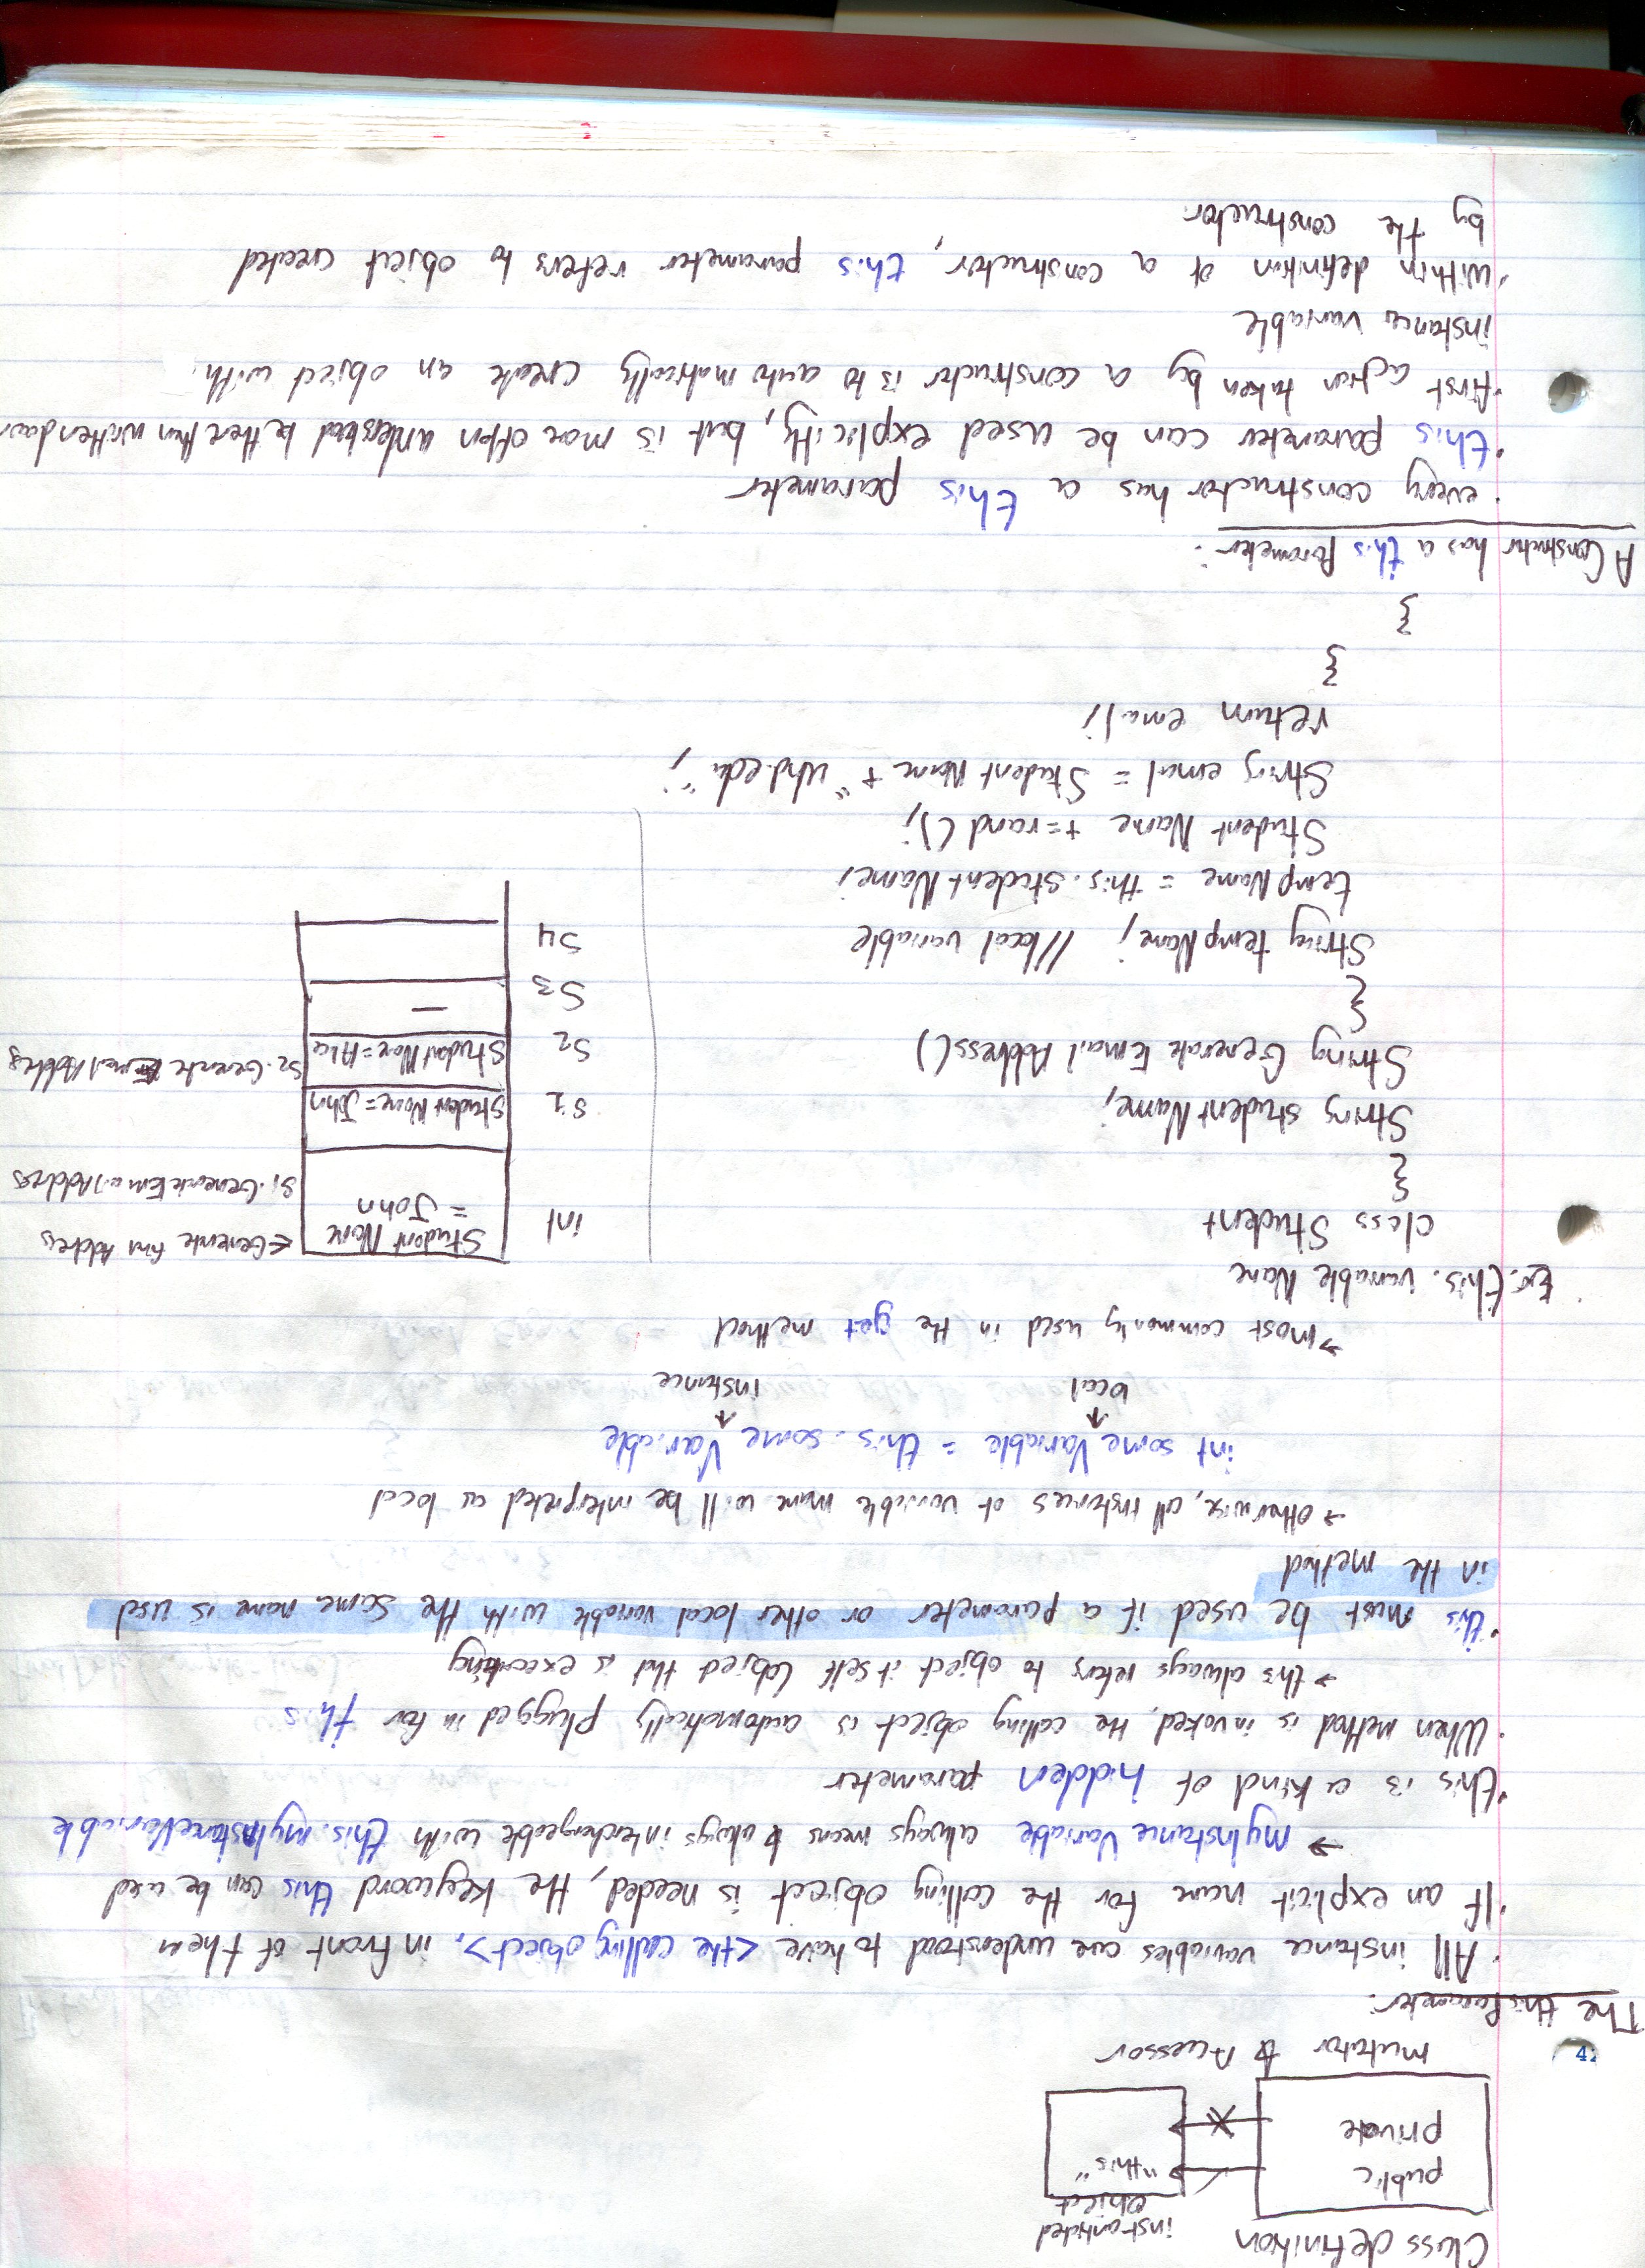 Class definition
instantiated
object
public
private
"this"
mutator & Accessor
42
The this Parameter:
· All instance variables are understood to have <the calling object>. in front of them
· If an explicit name for the calling object is needed, the keyword this can be used
→ myInstanceVariable always means & always interchangeable with this.myInstanceVariable
· this is a kind of hidden parameter
· When method is invoked, the calling object is automatically plugged in for this
→ this always refers to object itself (object that is executing
· this must be used if a parameter or other local variable with the same name is used
in the method
→ otherwise, all instances of variable name will be interpreted as local
int someVariable = this.someVariable
local instance
→ most commonly used in the get method
Ex. this.variableName
class Student
{
String studentName;
String GenerateEmailAddress()
{
String tempName; //local variable
tempName = this.studentName;
StudentName += rand();
String email = StudentName + "uhd.edu";
return email;
}
}
int
Student Name
= John
← Generate Address
S1. GenerateEmailAddress
S1
StudentName = John
S2
StudentName =
S2. GenerateEmailAddress
S3
—
S4
A Constructor has a this Parameter:
· every constructor has a this parameter
· this parameter can be used explicitly, but is more often understood better than written down
· first action taken by a constructor is to automatically create an object with
instance variable
· within definition of a constructor, this parameter refers to object created
by the constructor